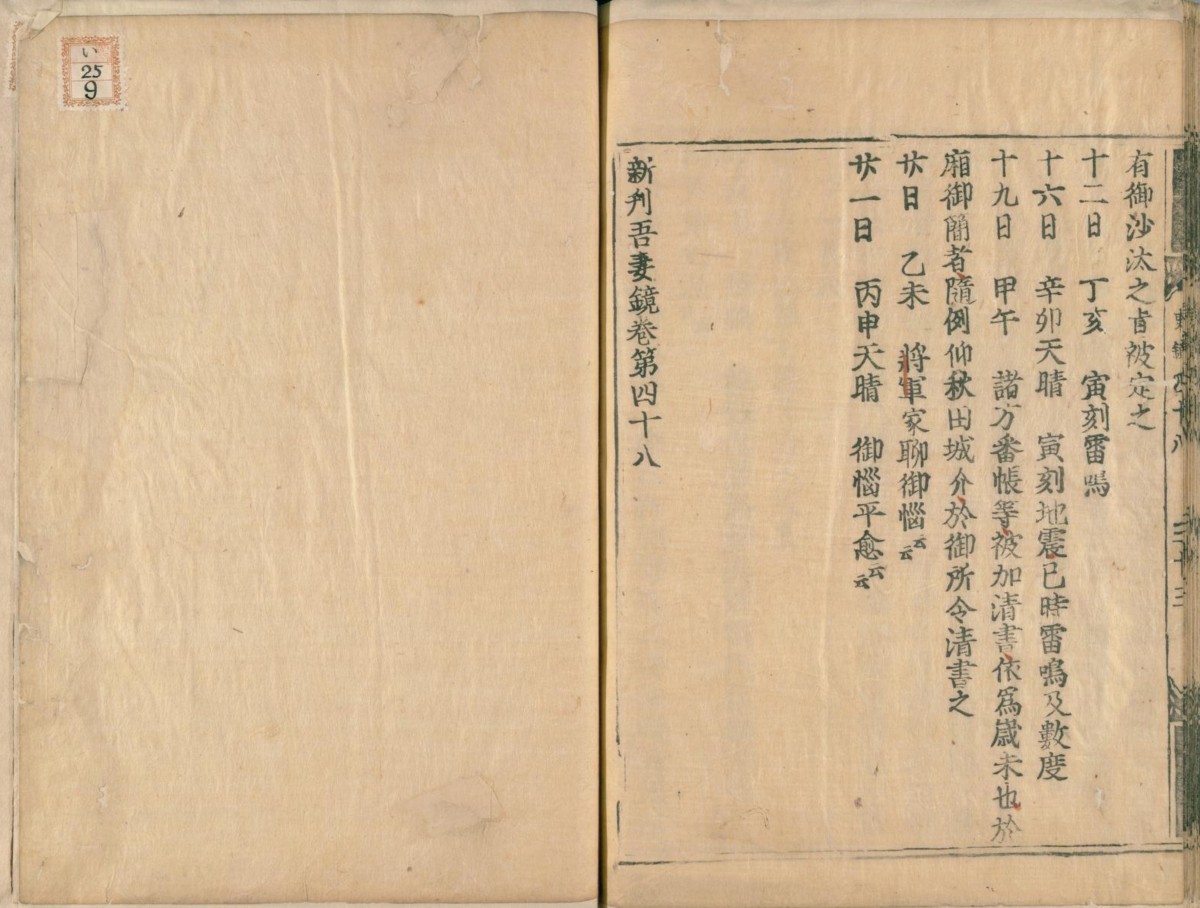 有御沙汰之旨被定之
十二日　丁亥　寅刻雷鳴
十六日　辛卯天晴　寅刻地震巳時雷鳴及數度
十九日　甲午　諸方番帳等被加清書依爲歳末也於
廂御簡者隨例仰秋田城介於御所令清書之
廿日　乙未　將軍家聊御惱云云
廿一日　丙申天晴　御惱平愈云云
新刋吾妻鏡卷第四十八
い
25
9